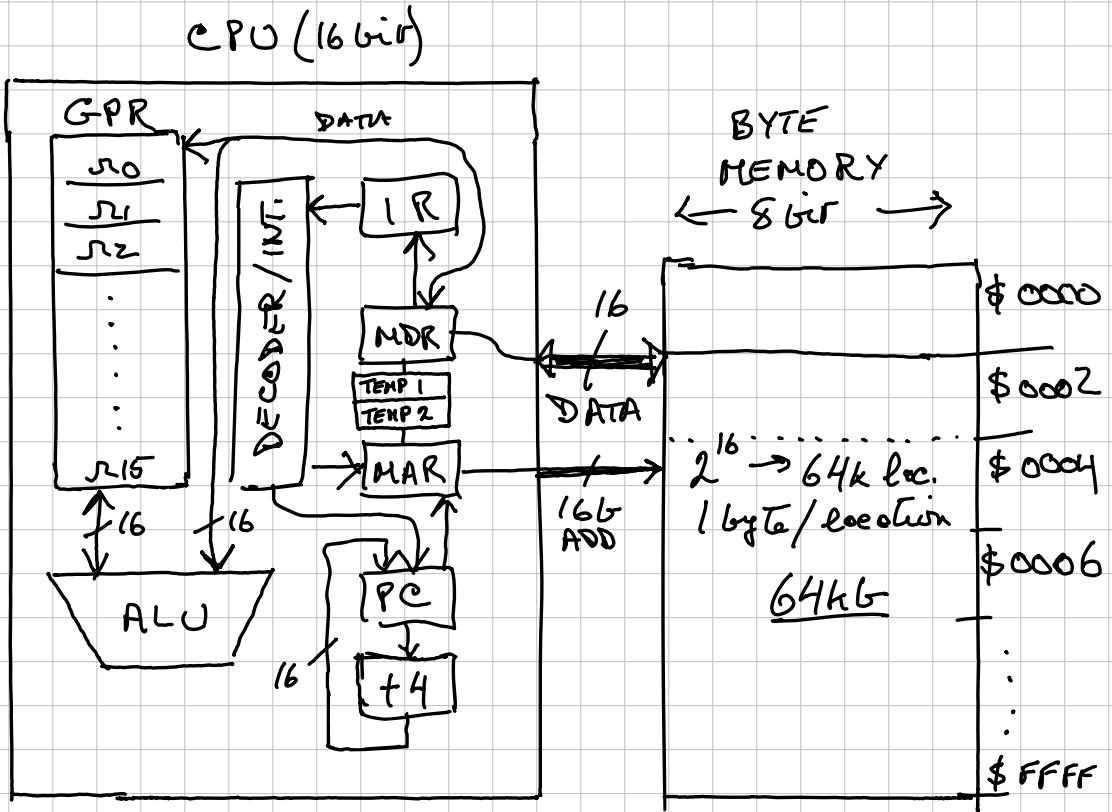 CPU (16 bit)
GPR
r0
r1
r2
r15
DATA
DECODER/INT.
IR
MDR
TEMP 1
TEMP 2
MAR
PC
+4
16
16
16
ALU
16
DATA
16b
ADD
BYTE
MEMORY
8 bit
2^16 → 64k loc.
1 byte/location
64kb
$ 0000
$ 0002
$ 0004
$ 0006
$ FFFF